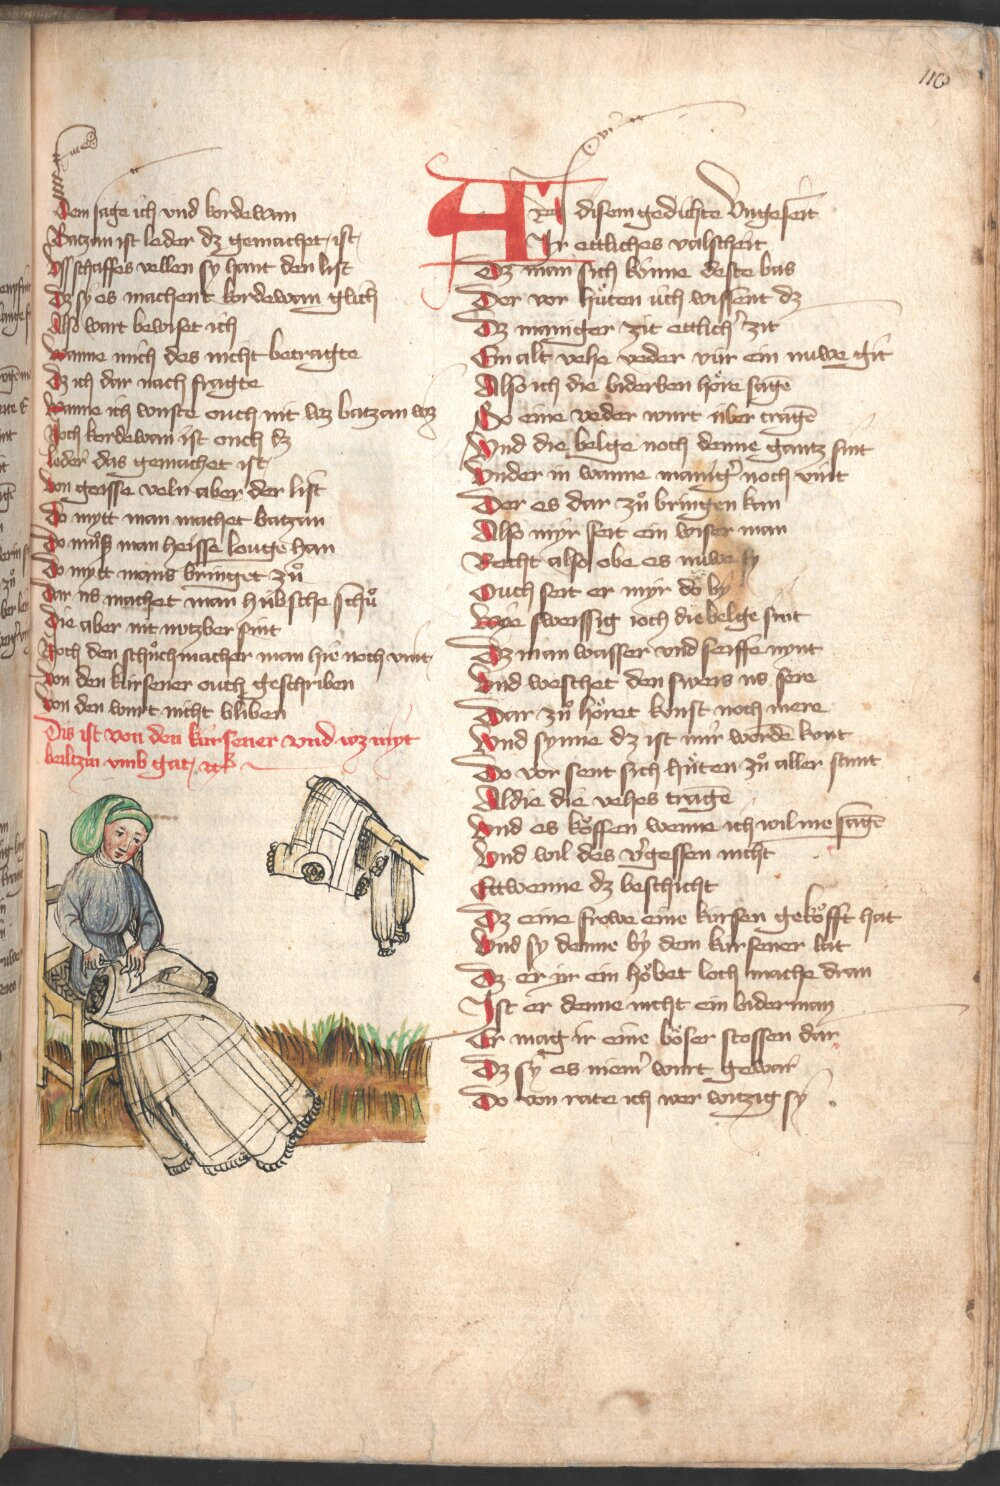 116
Den sage ich vnd kordewan
Batzan ist leder dz gemachet ist
Vss schaffes vellen sy hant den list
Dz sy es machent kordewan glich
Also wart bewiset ich
Wanne mich des nicht betragte
Dz ich dar nach fragte
Wanne ich wuste ouch nit wz batzan wz
Joch kordewan ist ouch dz
leder das gemachet ist
Von geisse veln aber der list
Do mytt man machet batzan
Do muͦss man heisse louge han
Do mytt mans bringet zuͦ
Dar us machet man hübsche schuͦ
Die aber nit nutzber sint
Noch den schuͦchmacher man hie noch vint
Von den kürsener ouch geschriben
Von den wurt nicht bliben
Dis ist von den kürsener vnd wz myt
beiltzin vmb gat
An disem gedichte Vngeseit
Jr ettliches valscheit
Dz man sich könne deste bas
Dor vor hüten üch wissent dz
Dz maniger zit ettlich zit
Ein alt vehe veder vür ein nuwe git
Also ich die biderben höre sagē
Do eine veder wurt über tragē
Vnd die belge noch denne gantz sint
Vnder in wanne manig' noch vint
Der es dar zuͦ bringen kan
Also myr seit ein wiser man
Recht also obe es nuwe sy
Ouch seit er myr do by
Wye sweissig ioch die belge sint
Dz man wasser vnd seiffe nynt
Vnd weschet den sweis us sere
Dar zuͦ höret kunst noch mere
Vnd synne dz ist mir wordē kunt
Do vor sent sich hüten zuͦ aller stunt
Aldie die vehes tragē
Vnd es köffen wenne ich wil me sagē
Vnd wil des v'gessen nicht
Ettwenne dz beschicht
Dz eine frowe eine kürsen geköfft hat
Vnd sy denne by dem kürsener lat
Dz er ir ein höbet loch mache dran
Jst er denne nicht ein biderman
Er mag ir eine böser stossen dar
Dz sy es niem' wurt gewar
Do von rate ich wer witzig sy